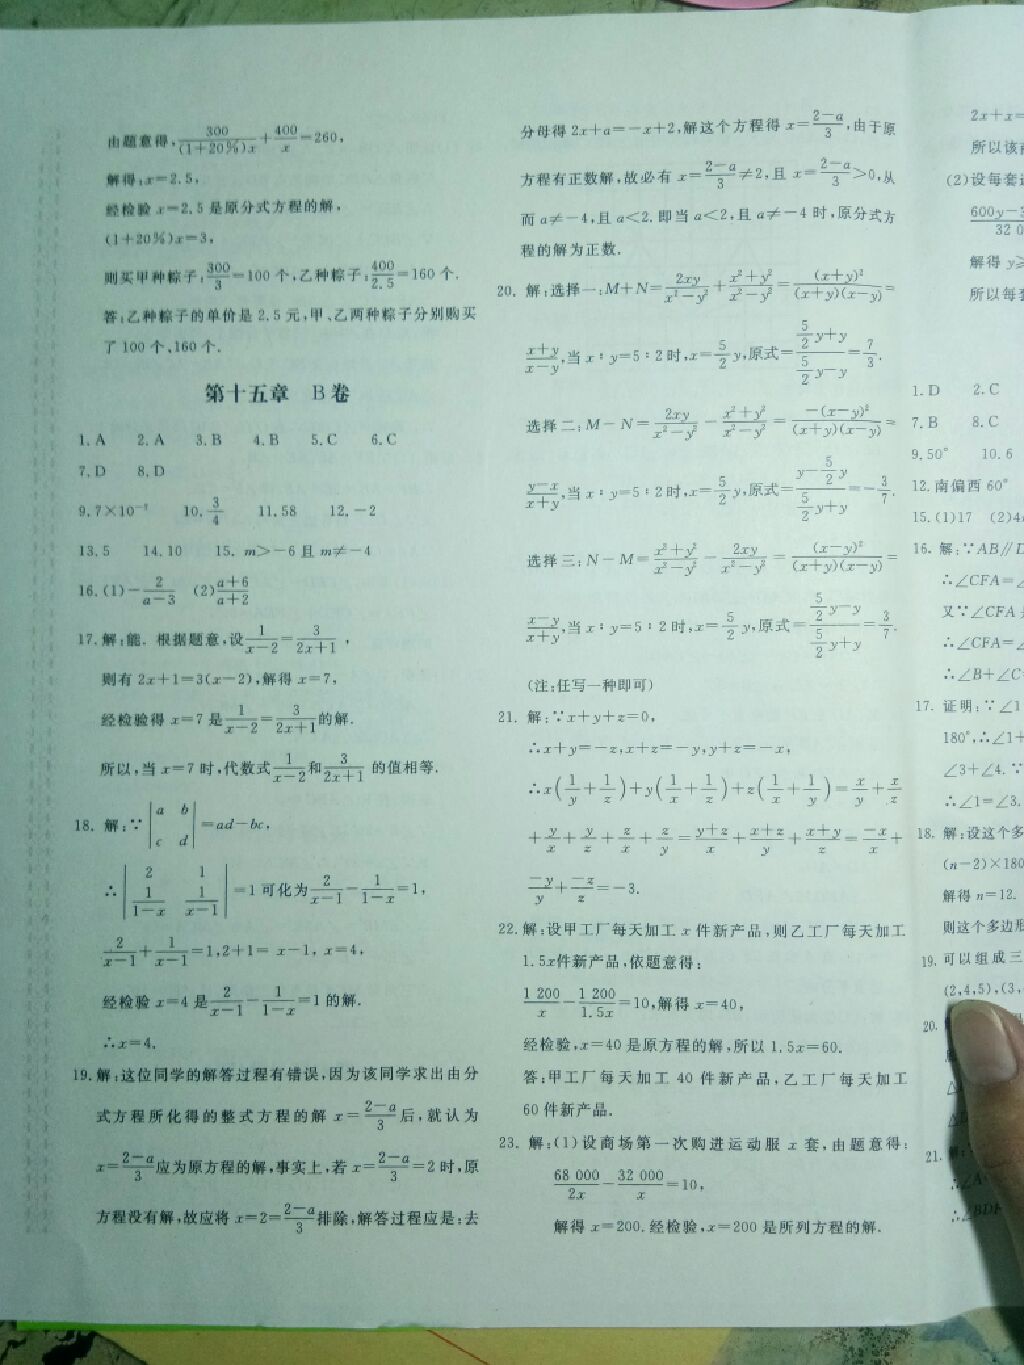 由题意得,300/(1+20%)x+400/x=260,
解得:x=2.5,
经检验 x=2.5 是原分式方程的解,
(1+20%)x=3,
则买甲种粽子:300/3=100 个,乙种粽子:400/2.5=160 个.
答:乙种粽子的单价是 2.5 元,甲、乙两种粽子分别购买
了 100 个、160 个.
第十五章 B卷
1. A 2. A 3. B 4. B 5. C 6. C
7. D 8. D
10. 3/4 11. 58 12. -2
13. 5 14. 10 15. m>-6 且 m≠-4
16. (1)-2/(a-3) (2)(a+6)/(a+2)
17. 解:能. 根据题意,设1/(x-2)=3/(2x+1),
则有 2x+1=3(x-2),解得 x=7,
经检验得 x=7 是1/(x-2)=3/(2x+1)的解.
所以,当 x=7 时,代数式1/(x-2)和3/(2x+1)的值相等.
18. 解:∵|a b; c d|=ad-bc,
∴|2 1; 1/(1-x) 1/(x-1)|=1 可化为2/(x-1)-1/(1-x)=1,
2/(x-1)+1/(x-1)=1,2+1= x-1, x=4,
经检验 x=4 是2/(x-1)-1/(1-x)=1 的解.
∴x=4.
19. 解:这位同学的解答过程有错误,因为该同学求出由分
式方程所化得的整式方程的解 x=(2-a)/3后,就认为
x=(2-a)/3应为原方程的解,事实上,若 x=(2-a)/3=2 时,原
方程没有解,故应将 x=2=(2-a)/3排除,解答过程应是:去
分母得 2x+a=-x+2,解这个方程得 x=(2-a)/3,由于原
方程有正数解,故必有 x=(2-a)/3≠2,且 x=(2-a)/3>0,从
而 a≠-4,且 a<2. 即当 a<2,且 a≠-4 时,原分式方
程的解为正数.
20. 解:选择一:M+N=2xy/(x²-y²)+(x²+y²)/(x²-y²)=(x+y)²/(x+y)(x-y)=
(x+y)/(x-y),当 x∶y=5∶2 时,x=5/2 y,原式=(5/2 y+y)/(5/2 y-y)=7/3.
选择二:M-N=2xy/(x²-y²)-(x²+y²)/(x²-y²)=-(x-y)²/(x+y)(x-y)=
(y-x)/(x+y),当 x∶y=5∶2 时,x=5/2 y,原式=(y-5/2 y)/(5/2 y+y)=-3/7.
选择三:N-M=(x²+y²)/(x²-y²)-2xy/(x²-y²)=(x-y)²/(x+y)(x-y)=
(x-y)/(x+y),当 x∶y=5∶2 时,x=5/2 y,原式=(5/2 y-y)/(5/2 y+y)=3/7.
(注:任写一种即可)
21. 解:∵x+y+z=0,
∴x+y=-z,x+z=-y,y+z=-x,
∴x(1/y+1/z)+y(1/x+1/z)+z(1/x+1/y)=x/y+x/z
+y/x+y/z+z/x+z/y=(y+z)/x+(x+z)/y+(x+y)/z=-x/x+
-y/y+-z/z=-3.
22. 解:设甲工厂每天加工 x 件新产品,则乙工厂每天加工
1.5x件新产品,依题意得:
1 200/x-1 200/1.5x=10,解得 x=40,
经检验,x=40 是原方程的解,所以 1.5x=60.
答:甲工厂每天加工 40 件新产品,乙工厂每天加工
60 件新产品.
23. 解:(1)设商场第一次购进运动服 x 套,由题意得:
68 000/2x-32 000/x=10,
解得 x=200. 经检验,x=200 是所列方程的解.
2x+x=
所以该
(2)设每套
600y-
32 0
解得 y≥
所以每套
1. D 2. C
7. B 8. C
9. 50° 10. 6
12. 南偏西 60°
15. (1)17 (2)4
16. 解:∵AB∥D
∴∠CFA=∠
又∵∠CFA
∴∠CFA=∠
∴∠B+∠C
17. 证明:∵∠1
180°,∴∠1+
∠3+∠4. ∵
∴∠1=∠3.
18. 解:设这个多
(n-2)×180
解得 n=12.
则这个多边形
19. 可以组成三
(2,4,5),(3,
20.
21.
∴∠A
∴∠BDF